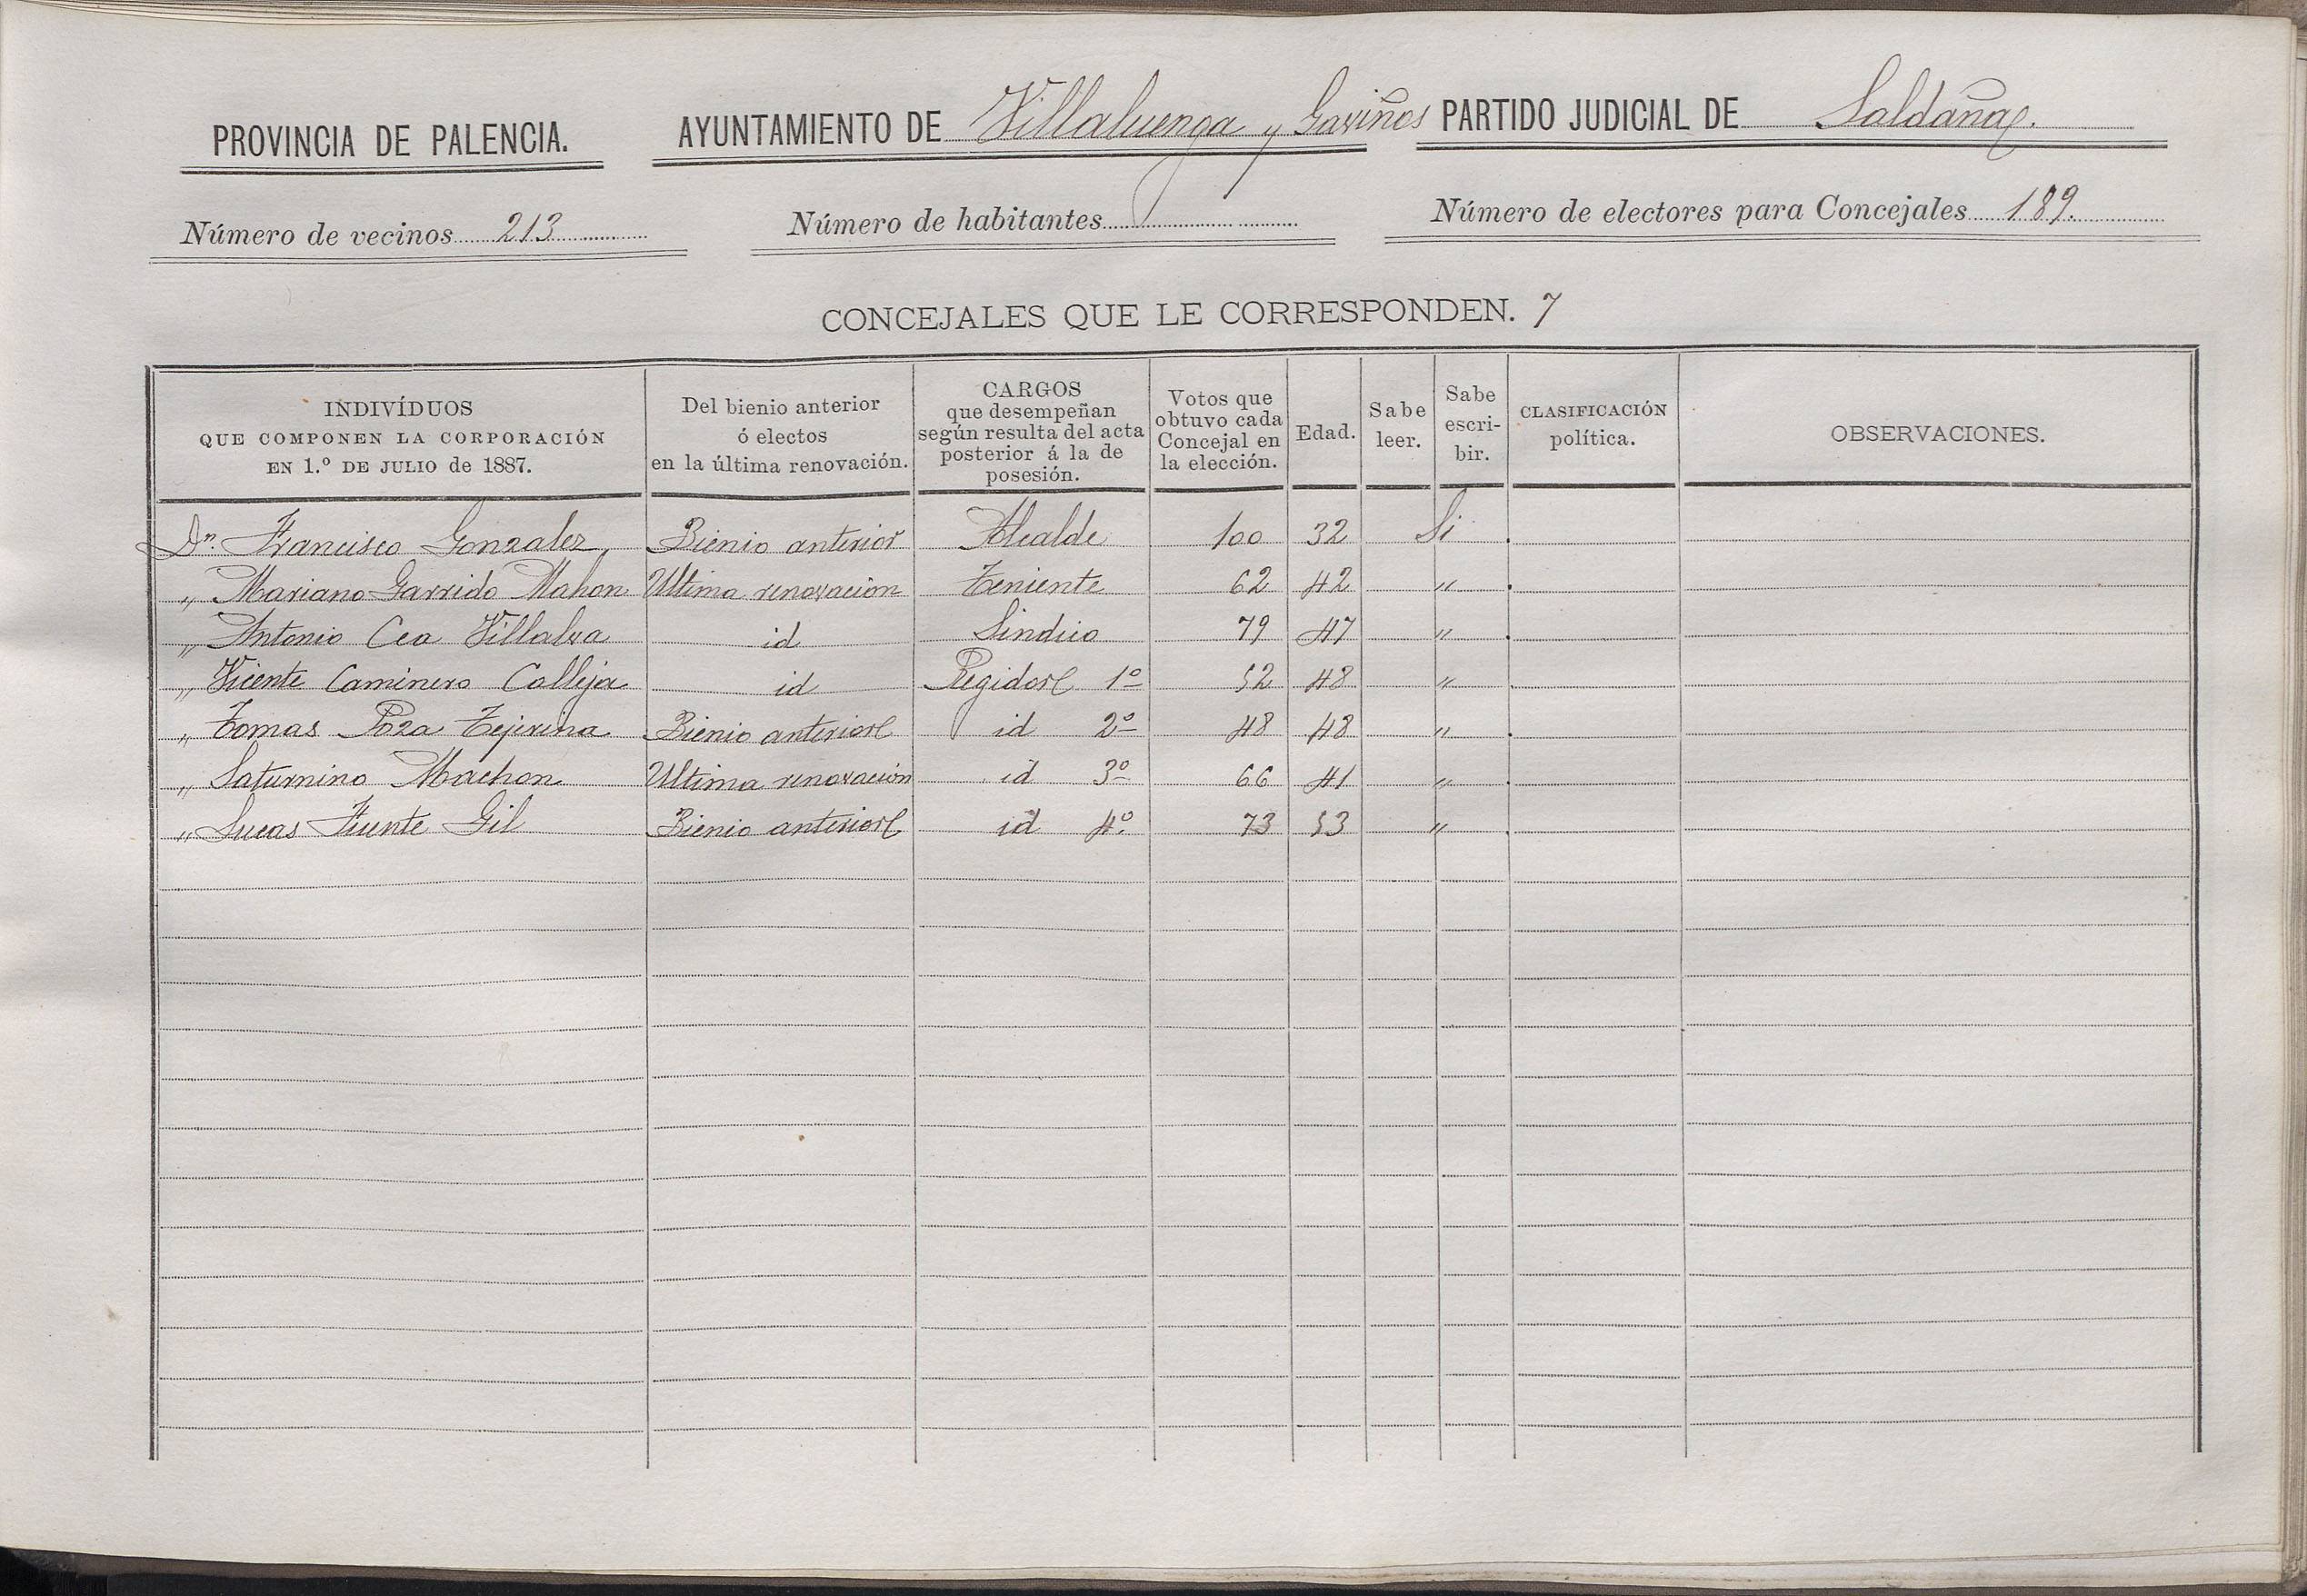 PROVINCIA DE PALENCIA. AYUNTAMIENTO DE Villaluenga y Gaviños PARTIDO JUDICIAL DE Saldaña.
Número de vecinos 213 Número de habitantes Número de electores para Concejales 189.
CONCEJALES QUE LE CORRESPONDEN. 7
INDIVÍDUOS
QUE COMPONEN LA CORPORACIÓN
EN 1.º DE JULIO de 1887.
Del bienio anterior
ó electos
en la última renovación.
CARGOS
que desempeñan
según resulta del acta
posterior á la de
posesión.
Votos que
obtuvo cada
Concejal en
la elección.
Edad.
Sabe
leer.
Sabe
escri-
bir.
CLASIFICACIÓN
política.
OBSERVACIONES.
Dn. Francisco Gonzalez Bienio anterior Alcalde 100 32 Si
" Mariano Garrido Mahon Ultima renovacion Teniente 62 42 "
" Antonio Cea Villalva id Sindico 79 47 "
" Vicente Caminero Calleja id Regidor 1º 52 48 "
" Tomas Poza Tejerina Bienio anterior id 2º 48 48 "
" Saturnino Machon Ultima renovación id 3º 66 41 "
" Lucas Fuente Gil Bienio anterior id 4º 73 53 "